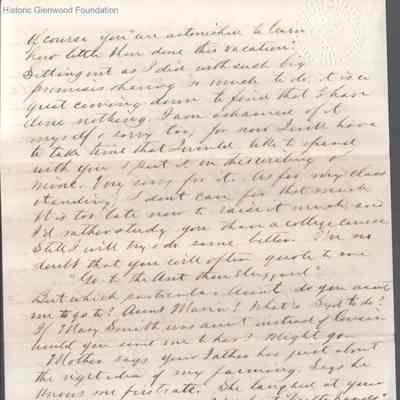 Historic Glenwood Foundation
Of course you are astonished to learn
how little I have done this vacation.
Setting out as I did with such big
promises having so much to do, it is a
great coming down to find that I have
done nothing. I am ashamed of it
myself & sorry too, for now I will have
to take time that I would like to spend
with you & put it on
mind. Very sorry for it. As for my class
standing, I don't care for that much
It is too late now to raise it much and
I'd rather study you than a college course
Still I will try & do some better. I've no
doubt that you will often quote to me
"Go to the Aunt thou Sluggard."
But which particular Aunt do you want
me to go to? Aunt Maria? What's Syd to do?
If Mary Smith was aunt instead of Cousin
would you send me to her? I might go.
Mother says your Father has just about
the right idea of my farming. Says he
knows me first rate. She laughed at your